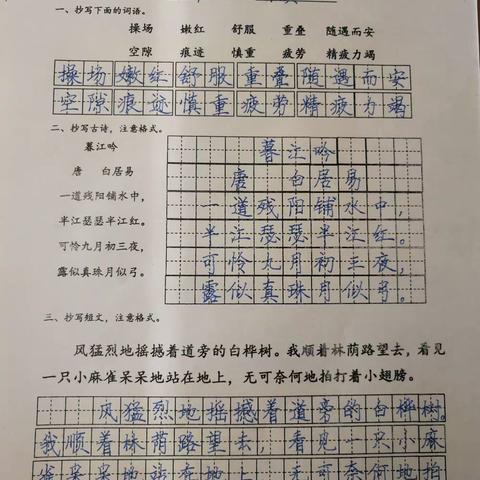 一、抄写下面的词语。
操场 嫩红 舒服 重叠 随遇而安
空隙 痕迹 慎重 疲劳 精疲力竭
操场嫩红舒服重叠随遇而安
空隙痕迹慎重疲劳精疲力竭
二、抄写古诗，注意格式。
暮江吟
唐 白居易
一道残阳铺水中，
半江瑟瑟半江红。
可怜九月初三夜，
露似真珠月似弓。
暮江吟
唐 白居易
一道残阳铺水中，
半江瑟瑟半江红。
可怜九月初三夜，
露似真珠月似弓。
三、抄写短文，注意格式。
风猛烈地摇撼着道旁的白桦树。我顺着林荫路望去，看见
一只小麻雀呆呆地站在地上，无可奈何地拍打着小翅膀。
风猛烈地摇撼着道旁的白桦树。
我顺着林荫路望去，看见一只小麻
雀呆呆地站在地上，无可奈何地拍